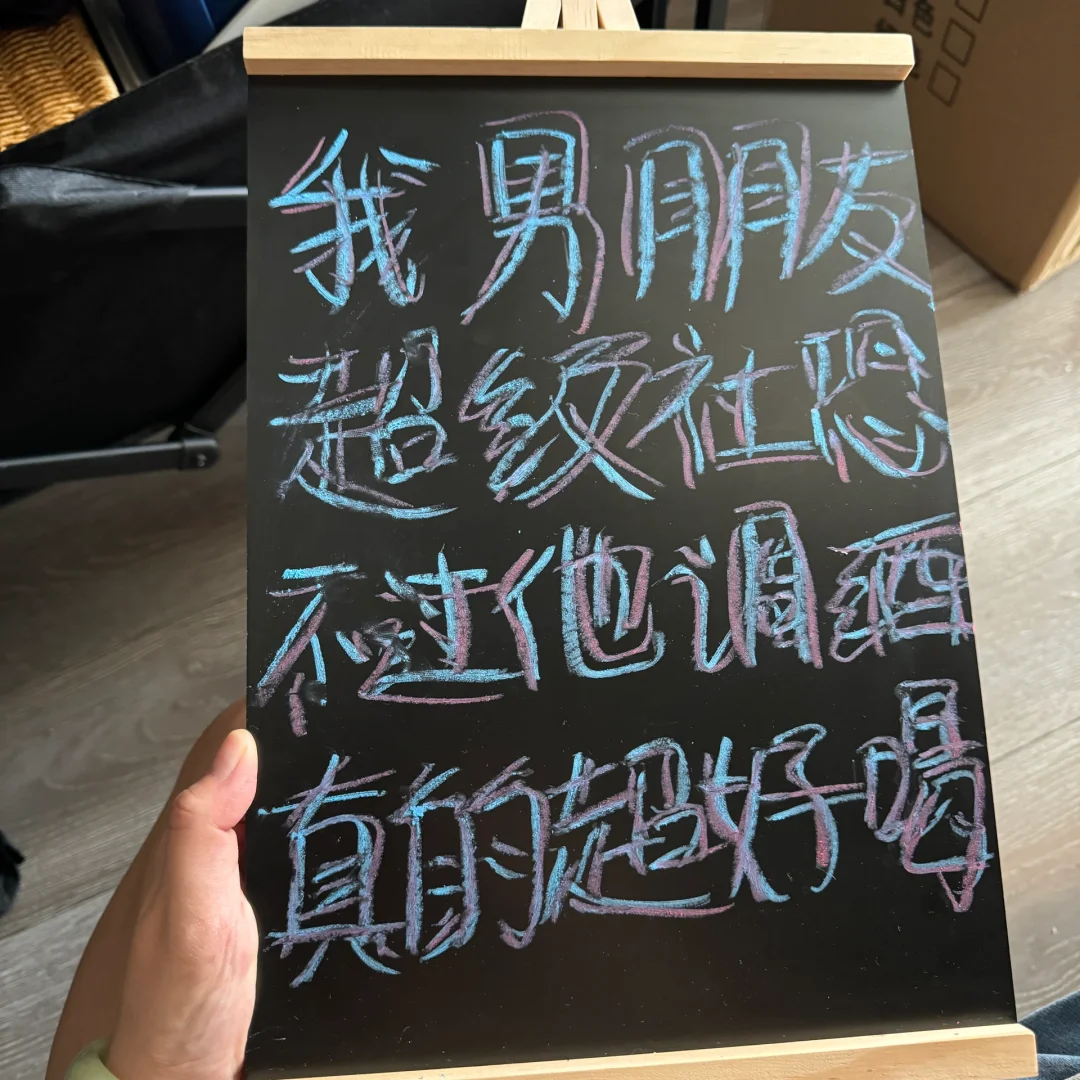 我男朋友
超级社恐
不过他调酒
真的超好喝